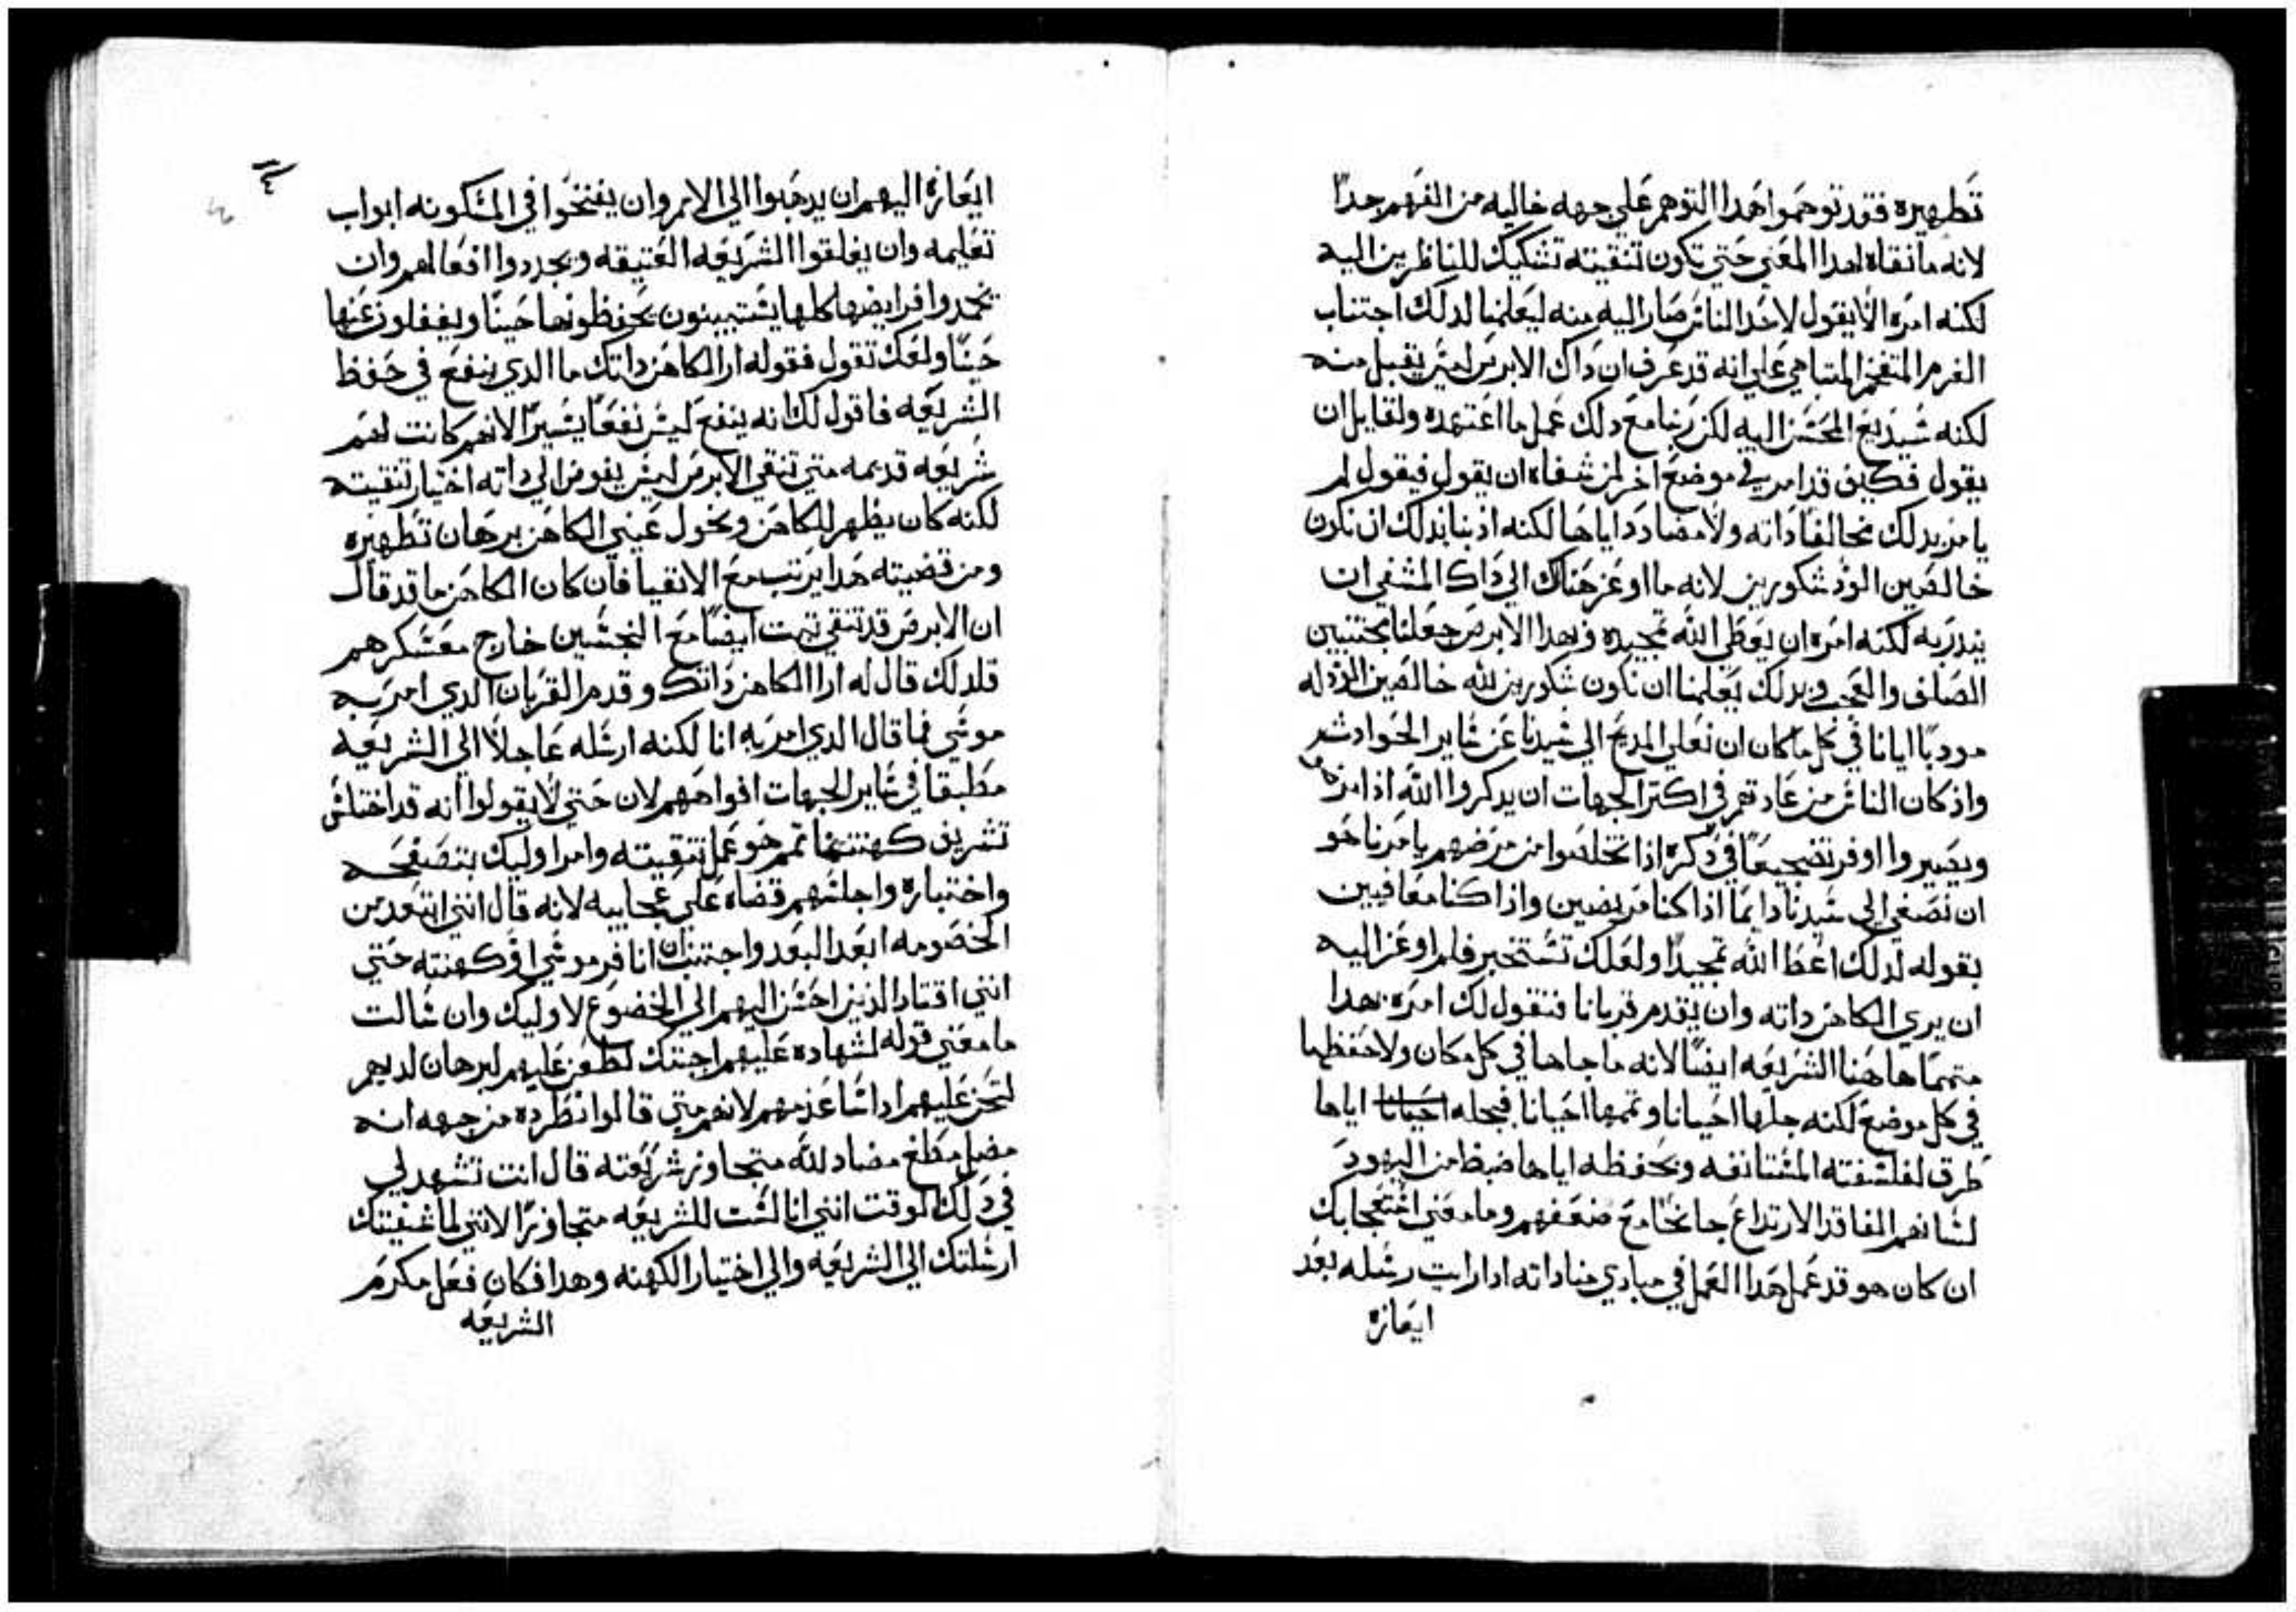 تطهيره فقد توهموا هدا التوهم علي جهه خاليه من الفهم جداً
لانه ما نقاه لهدا المعني حتي تكون تنقيته تشكيك للناظرين اليه
لكنه امره الا يقول لاحد الناس صار اليه منه ليعلمنا لدلك اجتناب
المتفخم المتباهي علي انه قد عرف ان داك الابرص ليس يقبل منه
لكنه سيديع المحسن اليه لكن ربنا مع دلك عمل ما اعتهده ولقايل ان
يقول فكيف قد امر في موضع اخر لمن شفاه ان يقول فيقول لم
يامر بدلك مخالفاً داته ولا مضادداً اياها لكنه ادبنا بدلك ان نكون
خالصين الود شكورين لانه ما اوعز هناك الي داك المشفي ان
يندر به لكنه امره ان يعطي الله تمجيده فبهدا الابرص جعلنا مجتنبين
الصلف والعجب وبدلك يعلمنا ان نكون شكورين لله خالصين الود له
مودباً ايانا في كل مكان ان نعلي المديح الي سيدنا عن ساير الحوادث
واذ كان الناس من عادتهم في اكتر الجهات ان يدكروا الله اذا
ويصيروا اوفر تضجيعاً في دكره اذا تخلصوا من مرضهم يامرنا هو
ان نصغي الي سيدنا دايماً اذا كنا مريضين واذا كنا معافيين
بقوله لدلك اعط الله تمجيداً ولعلك تستخبر فلم اوعز اليه
ان يري الكاهن داته وان يقدم قربانا فنقول لك امره بهدا
متمماً هاهنا الشريعه ايضاً لانه ما حلها في كل مكان ولا حفظها
في كل موضع لكنه حلها احيانا وتممها احيانا فبحله احيانا اياها
طرق لفلسفته المستانفه وبحفظه اياها ضبط من اليهود
لسانهم الفاقد الارتداع جانحاً مع ضعفهم وما معني استعجابك
ان كان هو قد عمل هدا العمل في مبادي مناداته ادا رايت رسله بعد
ايعازه
ايعازه اليهم ان يدهبوا الي الامم وان يفتحوا في المسكونه ابواب
تعليمه وان يغلقوا الشريعه العتيقه ويجددوا افعالهم وان
يخمدوا فرايضها كلها يستبينون يحفظونها حيناً ويغفلون عنها
حيناً ولعلك تقول فقوله ار الكاهن داتك ما الدي ينفع في حفظ
الشريعه فاقول لك انه ينفع ليس نفعاً يسيراً لانهم كانت لهم
شريعه قديمه متي تنقي الابرص ليس يفوض الي داته اختيار تنقيته
لكنه كان يظهر للكاهن ويخول عيني الكاهن برهان تطهيره
ومن قضيته هدا يرتب مع الانقيا فان كان الكاهن ما قد قال
ان الابرص قد تنقي تبت ايضاً مع النجسين خارج معسكرهم
فلدلك قال له ار الكاهن داتك وقدم القربان الدي امر به
موسي فما قال الدي امر به انا لكنه ارسله عاجلاً الي الشريعه
مطبقاً في ساير الجهات افواههم لان حتي لا يقولوا انه قد اختلس
تشريف كهنتنا تمم هو عمل تنقيته وامر اوليك بتصفحه
واختباره واجلسهم قضاه علي عجايبه لانه قال انني ابتعد من
الخصومه ابعد البعد واجتنب ان انافر موسي او كهنته حتي
انني اقتاد الذين احسن اليهم الي الخضوع لاوليك وان سالت
ما معني قوله لشهاده عليهم اجبتك لطعن عليهم لبرهان لديهم
عليهم ادا شا عذمهم لانهم متي قالوا نطرده من جهه انه
مضل مطغ مضاد لله متجاوز شريعته قال انت تشهد لي
في دلك الوقت انني انا لست للشريعه متجاوزاً لانني لما شفيتك
ارسلتك الي الشريعه والي اختيار الكهنه وهدا فكان فعل مكرم
الشريعه